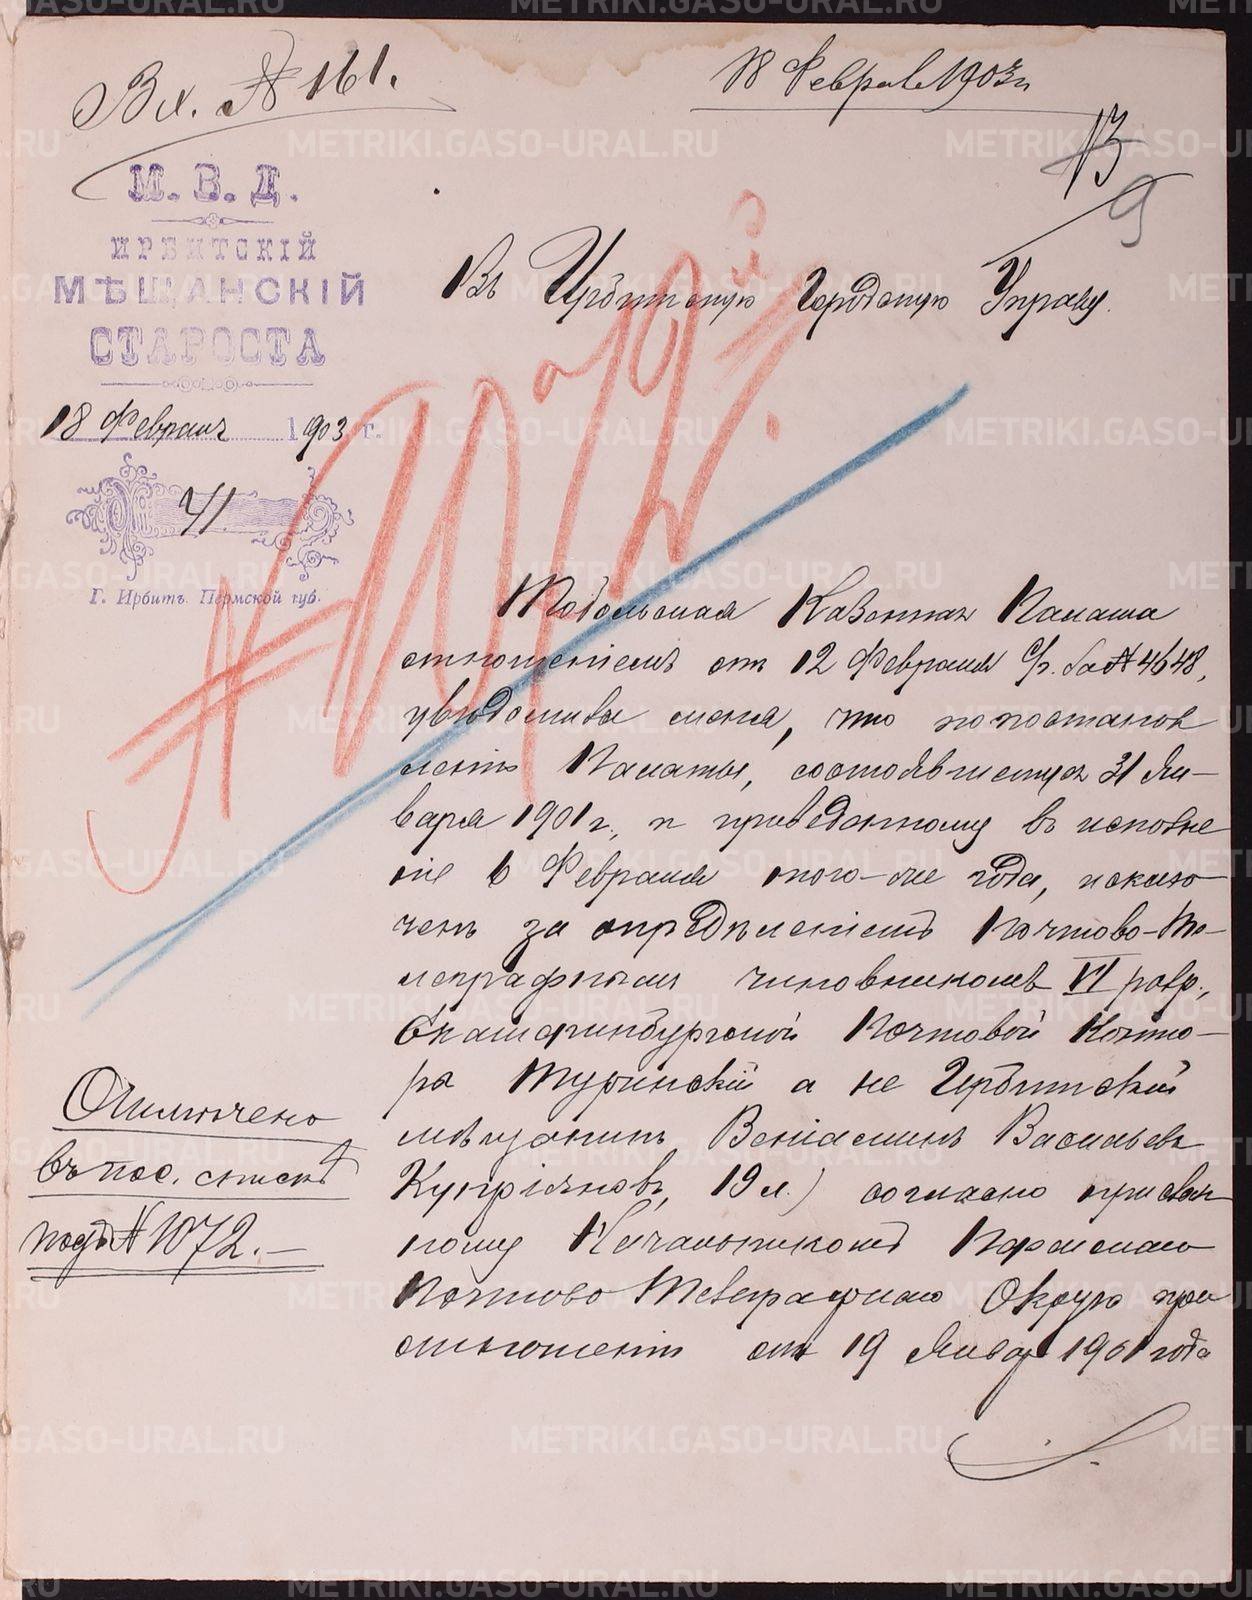 Вх. № 161.
18 Февраля 1903 г.
13
9
М. В. Д.
ИРБИТСКІЙ
МѢЩАНСКІЙ
СТАРОСТА
18 Февраля 1903 г.
№ 41.
Г. Ирбитъ Пермской губ.
Въ Ирбитскую Городскую Управу.
№ 1072
Тобольская Казенная Палата
отношеніемъ отъ 12 Февраля с/г. за № 4648,
увѣдомила меня, что по постанов
ленію Палаты, состоявшемуся 31 Ян-
варя 1901 г., и приведенному въ исполне
ніе 6 Февраля того-же года, исклю-
ченъ за опредѣленіемъ Почтово-Те-
леграфнымъ чиновникомъ VI разр.,
Екатеринбургской Почтовой Конто-
ры Туринскій а не Ирбитскій
мѣщанинъ Веніаминъ Васильевъ
Купріяновъ, 19 л.) согласно присван
ному Начальникомъ Пермскаго
Почтово Телеграфнаго Округа при
отношеніи отъ 19 Января 1901 года
Отмѣчено
въ пос. спискѣ
подъ № 1072.-
METRIKI.GASO-URAL.RU